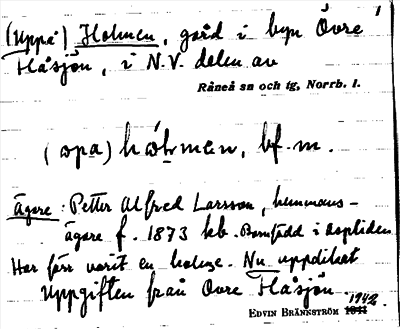 1
(Uppå) Holmen, gård i byn Övre
Håsjön, i N.V. delen av
Råneå sn och tg, Norrb. l.
(opa) hólmen, bf. m.
Ägare: Petter Alfred Larsson, hemmans-
ägare f. 1873 hb. Bomfödd i Aspliden
Har förr varit en holme. Nu uppdikat
Uppgiften från Övre Håsjön.
1942
EDVIN BRÄNNSTRÖM 1941